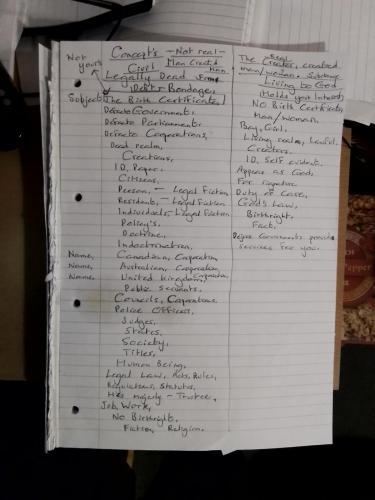 Concepts - Not real -
Not yours
Civil Man Created
Legally Dead from
Debt Bondage,
Subject: The Birth Certificate!
Defacto Governments
Defacto Parliaments
Defacto Corporations,
Dead realm,
Creations,
I.D. Paper,
Citizens,
Person, - Legal Fiction
Residents, - Legal Fiction
Individuals - Legal Fiction
Policy's,
Doctrine,
Indoctrination,
Name, Canadian, Corporation
Name, Australian, Corporation,
Name, United Kingdom, Corporation
Public Servants,
Councils, Corporations.
Police Officers,
Judges,
States,
Society,
Titles,
Human Being,
Legal Law, Acts, Rules,
Regulations, Statutes,
His majesty - Trustee,
Job, Work,
No Birthright,
Fiction, Religion.
The Real
Creator, created
man/woman. Substance
Living to God
(Holds your Interest)
NO Birth Certificate,
Man/woman.
Boy, Girl,
Living realm, Lawful.
Creators.
I.D. Self evident.
Appear as God,
For signature
Duty of Care,
God's Law,
Birthright,
Fact,
Dejure Governments provide
services for you.